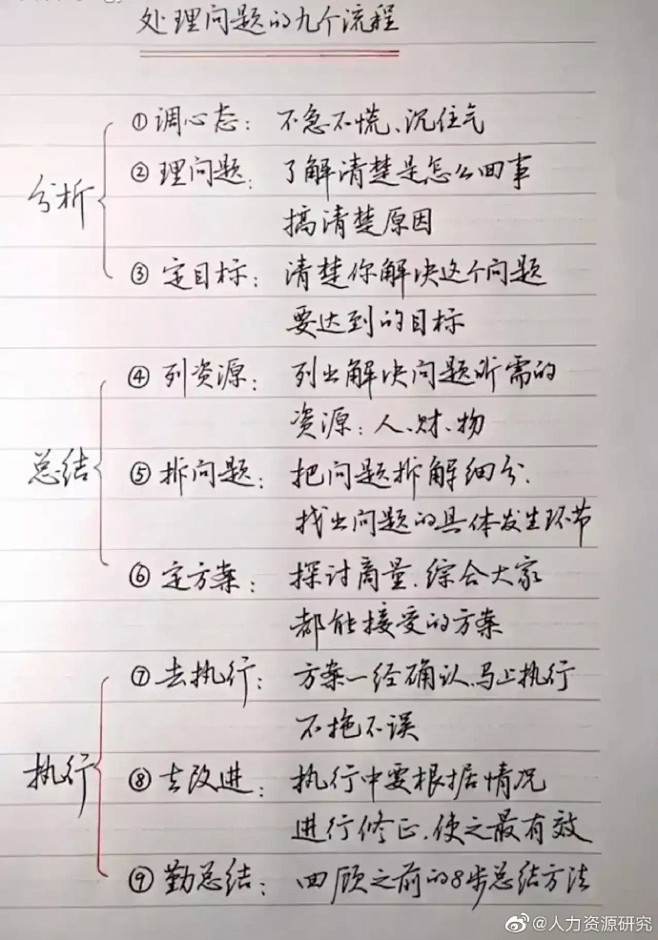 处理问题的九个流程
分析
①调心态：不急不慌、沉住气
②理问题：了解清楚是怎么回事
搞清楚原因
③定目标：清楚你解决这个问题
要达到的目标
总结
④列资源：列出解决问题所需的
资源：人、财、物
⑤拆问题：把问题拆解细分.
找出问题的具体发生环节
⑥定方案：探讨商量.综合大家
都能接受的方案
执行
⑦去执行：方案一经确认.马上执行
不拖不误
⑧去改进：执行中要根据情况
进行修正.使之最有效
⑨勤总结：回顾之前的8步总结方法
@人力资源研究